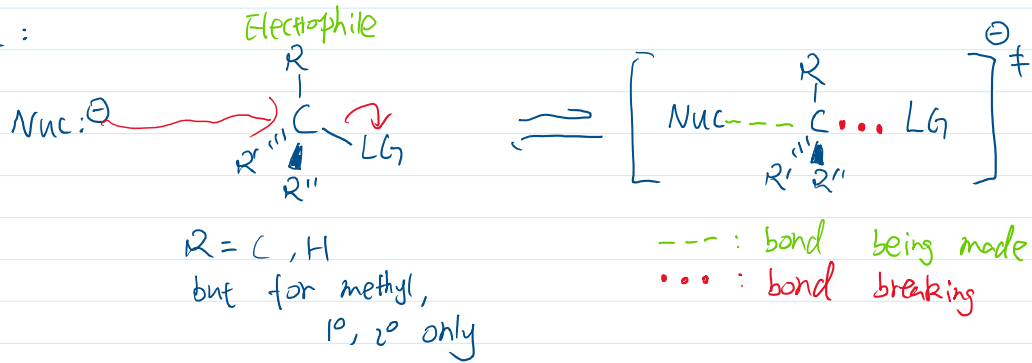 :
Electrophile
R
Nuc:⊖ C LG
R' R''
[Nuc---C•••LG]⊖‡
R
R' R''
R = C, H
but for methyl,
1°, 2° only
---: bond being made
•••: bond breaking